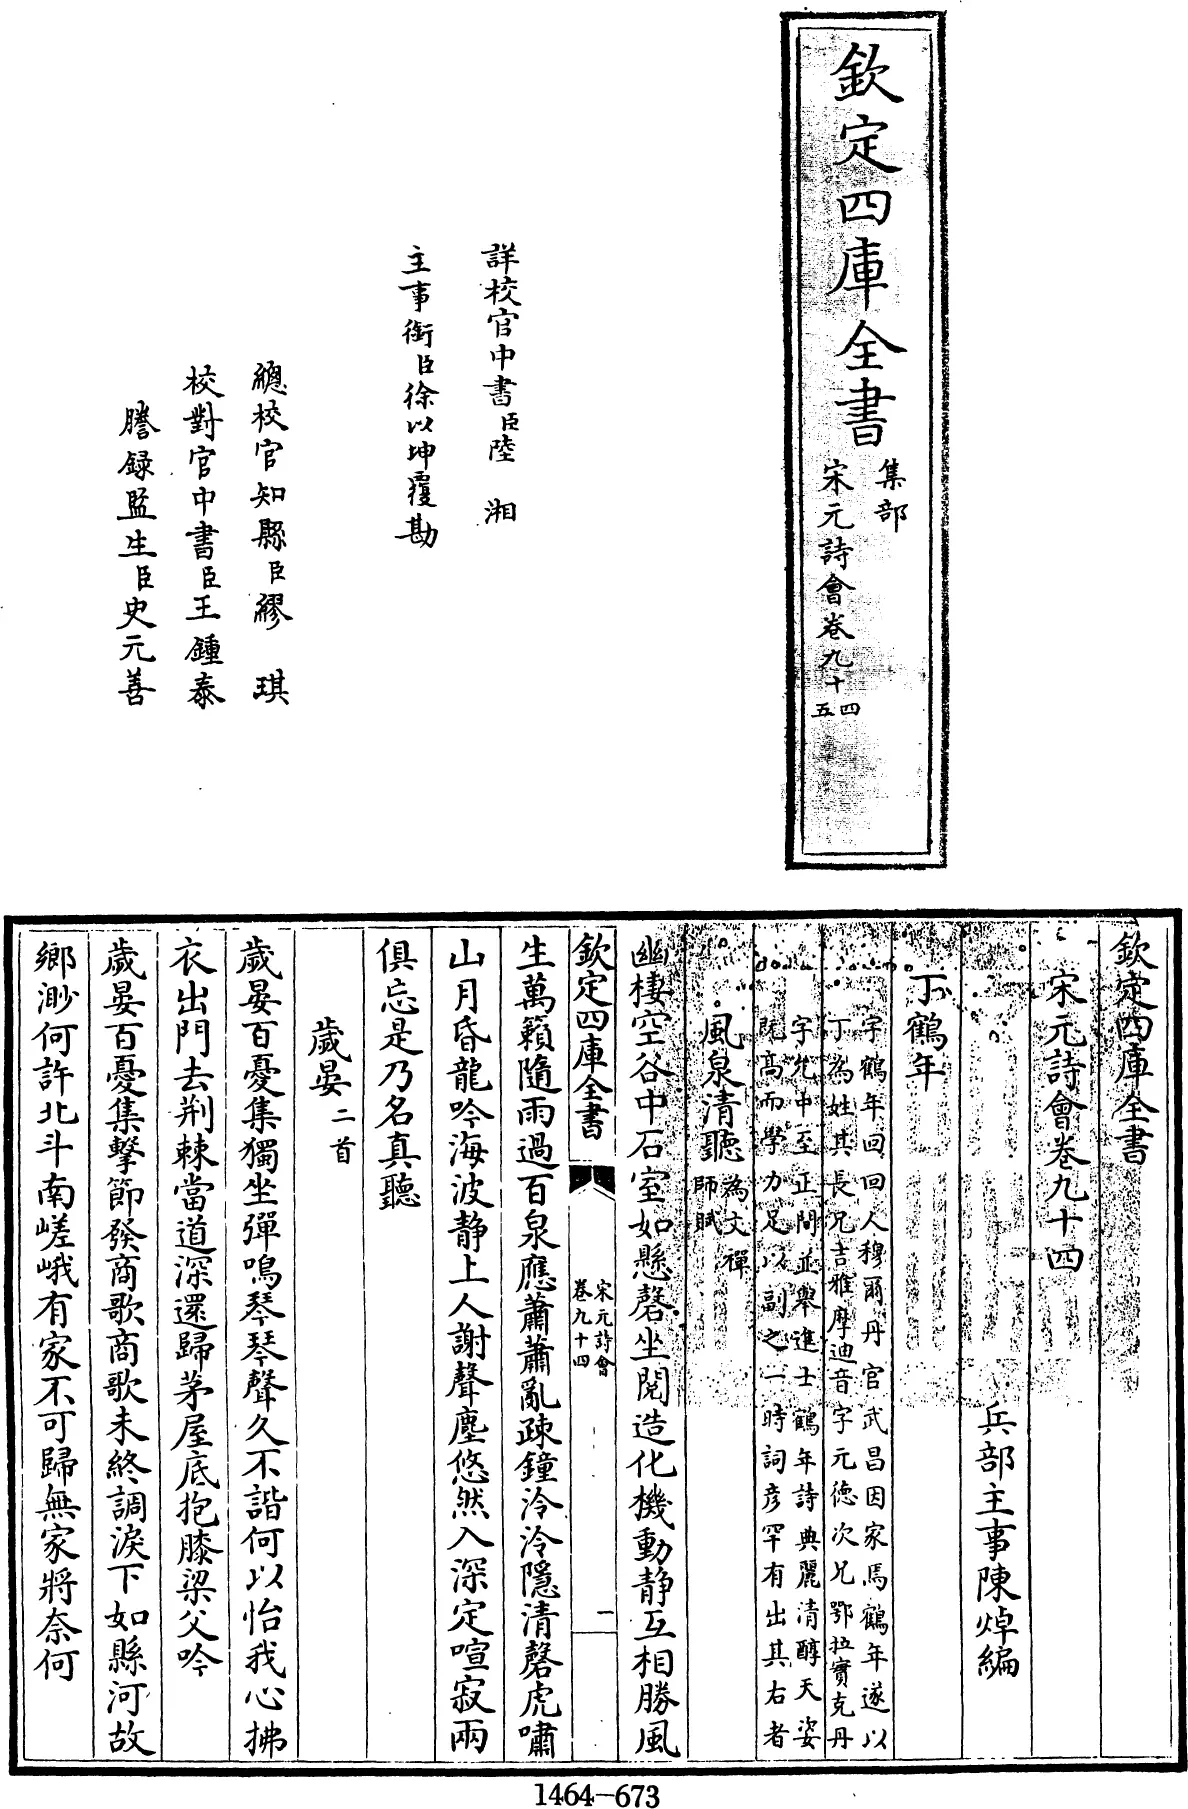 欽定四庫全書
集部
宋元詩會卷九十四
五
詳校官中書臣陸湘
主事銜臣徐以坤覆勘
總校官知縣臣繆琪
校對官中書臣王鍾泰
謄録監生臣史元善
欽定四庫全書
宋元詩會卷九十四
兵部主事陳焯編
丁鶴年
字鶴年回回人穆爾丹官武昌因家焉鶴年遂以
丁為姓其長兄吉雅摩迪音字元徳次兄鄂拉實克丹
字允中至正間並舉進士鶴年詩典麗清醇天姿
既高而學力足以副之一時詞彥罕有出其右者
風泉清聽為文禪
師賦
幽棲空谷中石室如懸磬坐閱造化機動静互相勝風
欽定四庫全書
宋元詩會
卷九十四
一
生萬籟隨雨過百泉應蕭蕭亂疎鐘泠泠隱清磬虎嘯
山月昏龍吟海波静上人謝聲塵悠然入深定喧寂兩
俱忘是乃名真聽
歲晏二首
歲晏百憂集獨坐彈鳴琴琴聲久不諧何以怡我心拂
衣出門去荆棘當道深還歸茅屋底抱膝梁父吟
歲晏百憂集擊節發商歌商歌未終調淚下如縣河故
鄉渺何許北斗南嵯峨有家不可歸無家將奈何
1464-673